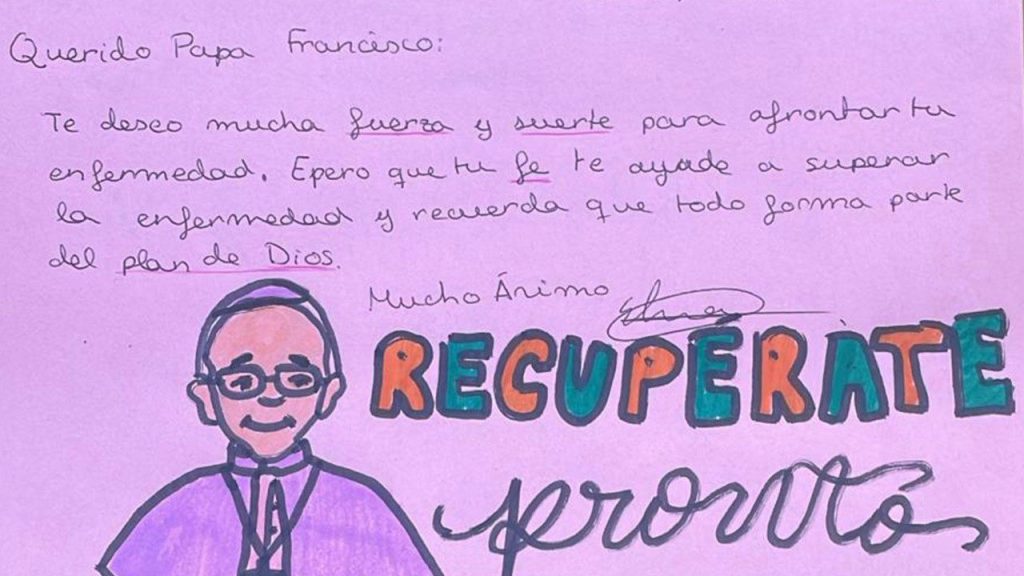 Querido Papa Francisco:
Te deseo mucha fuerza y suerte para afrontar tu
enfermedad. Epero que tu fe te ayude a superar
la enfermedad y recuerda que todo forma parte
del plan de Dios.
Mucho Ánimo
RECUPÉRATE
pronto